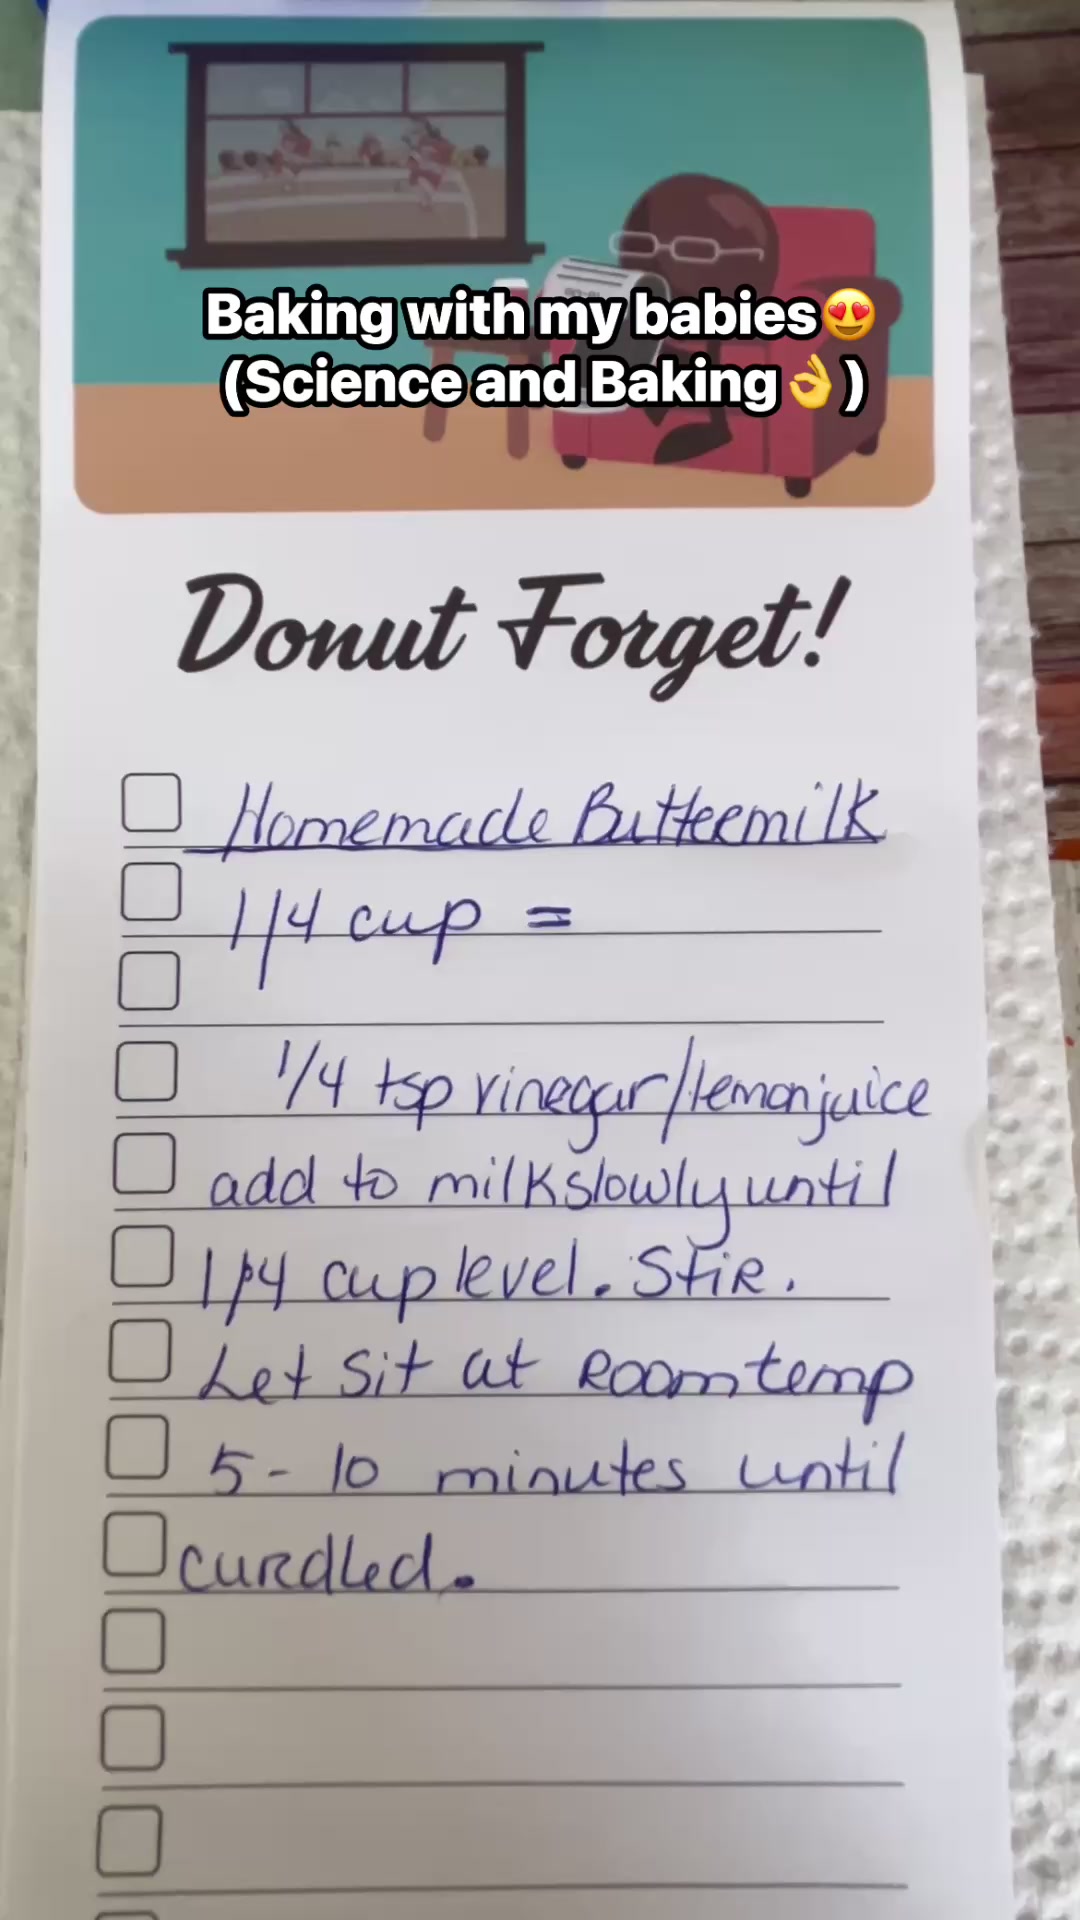 Baking with my babies😍
(Science and Baking👌)
Donut Forget!
Homemade Buttermilk
1/4 cup =
1/4 tsp vinegar/lemon juice
add to milk slowly until
1/4 cup level. Stir.
Let sit at Room temp
5-10 minutes until
curdled.